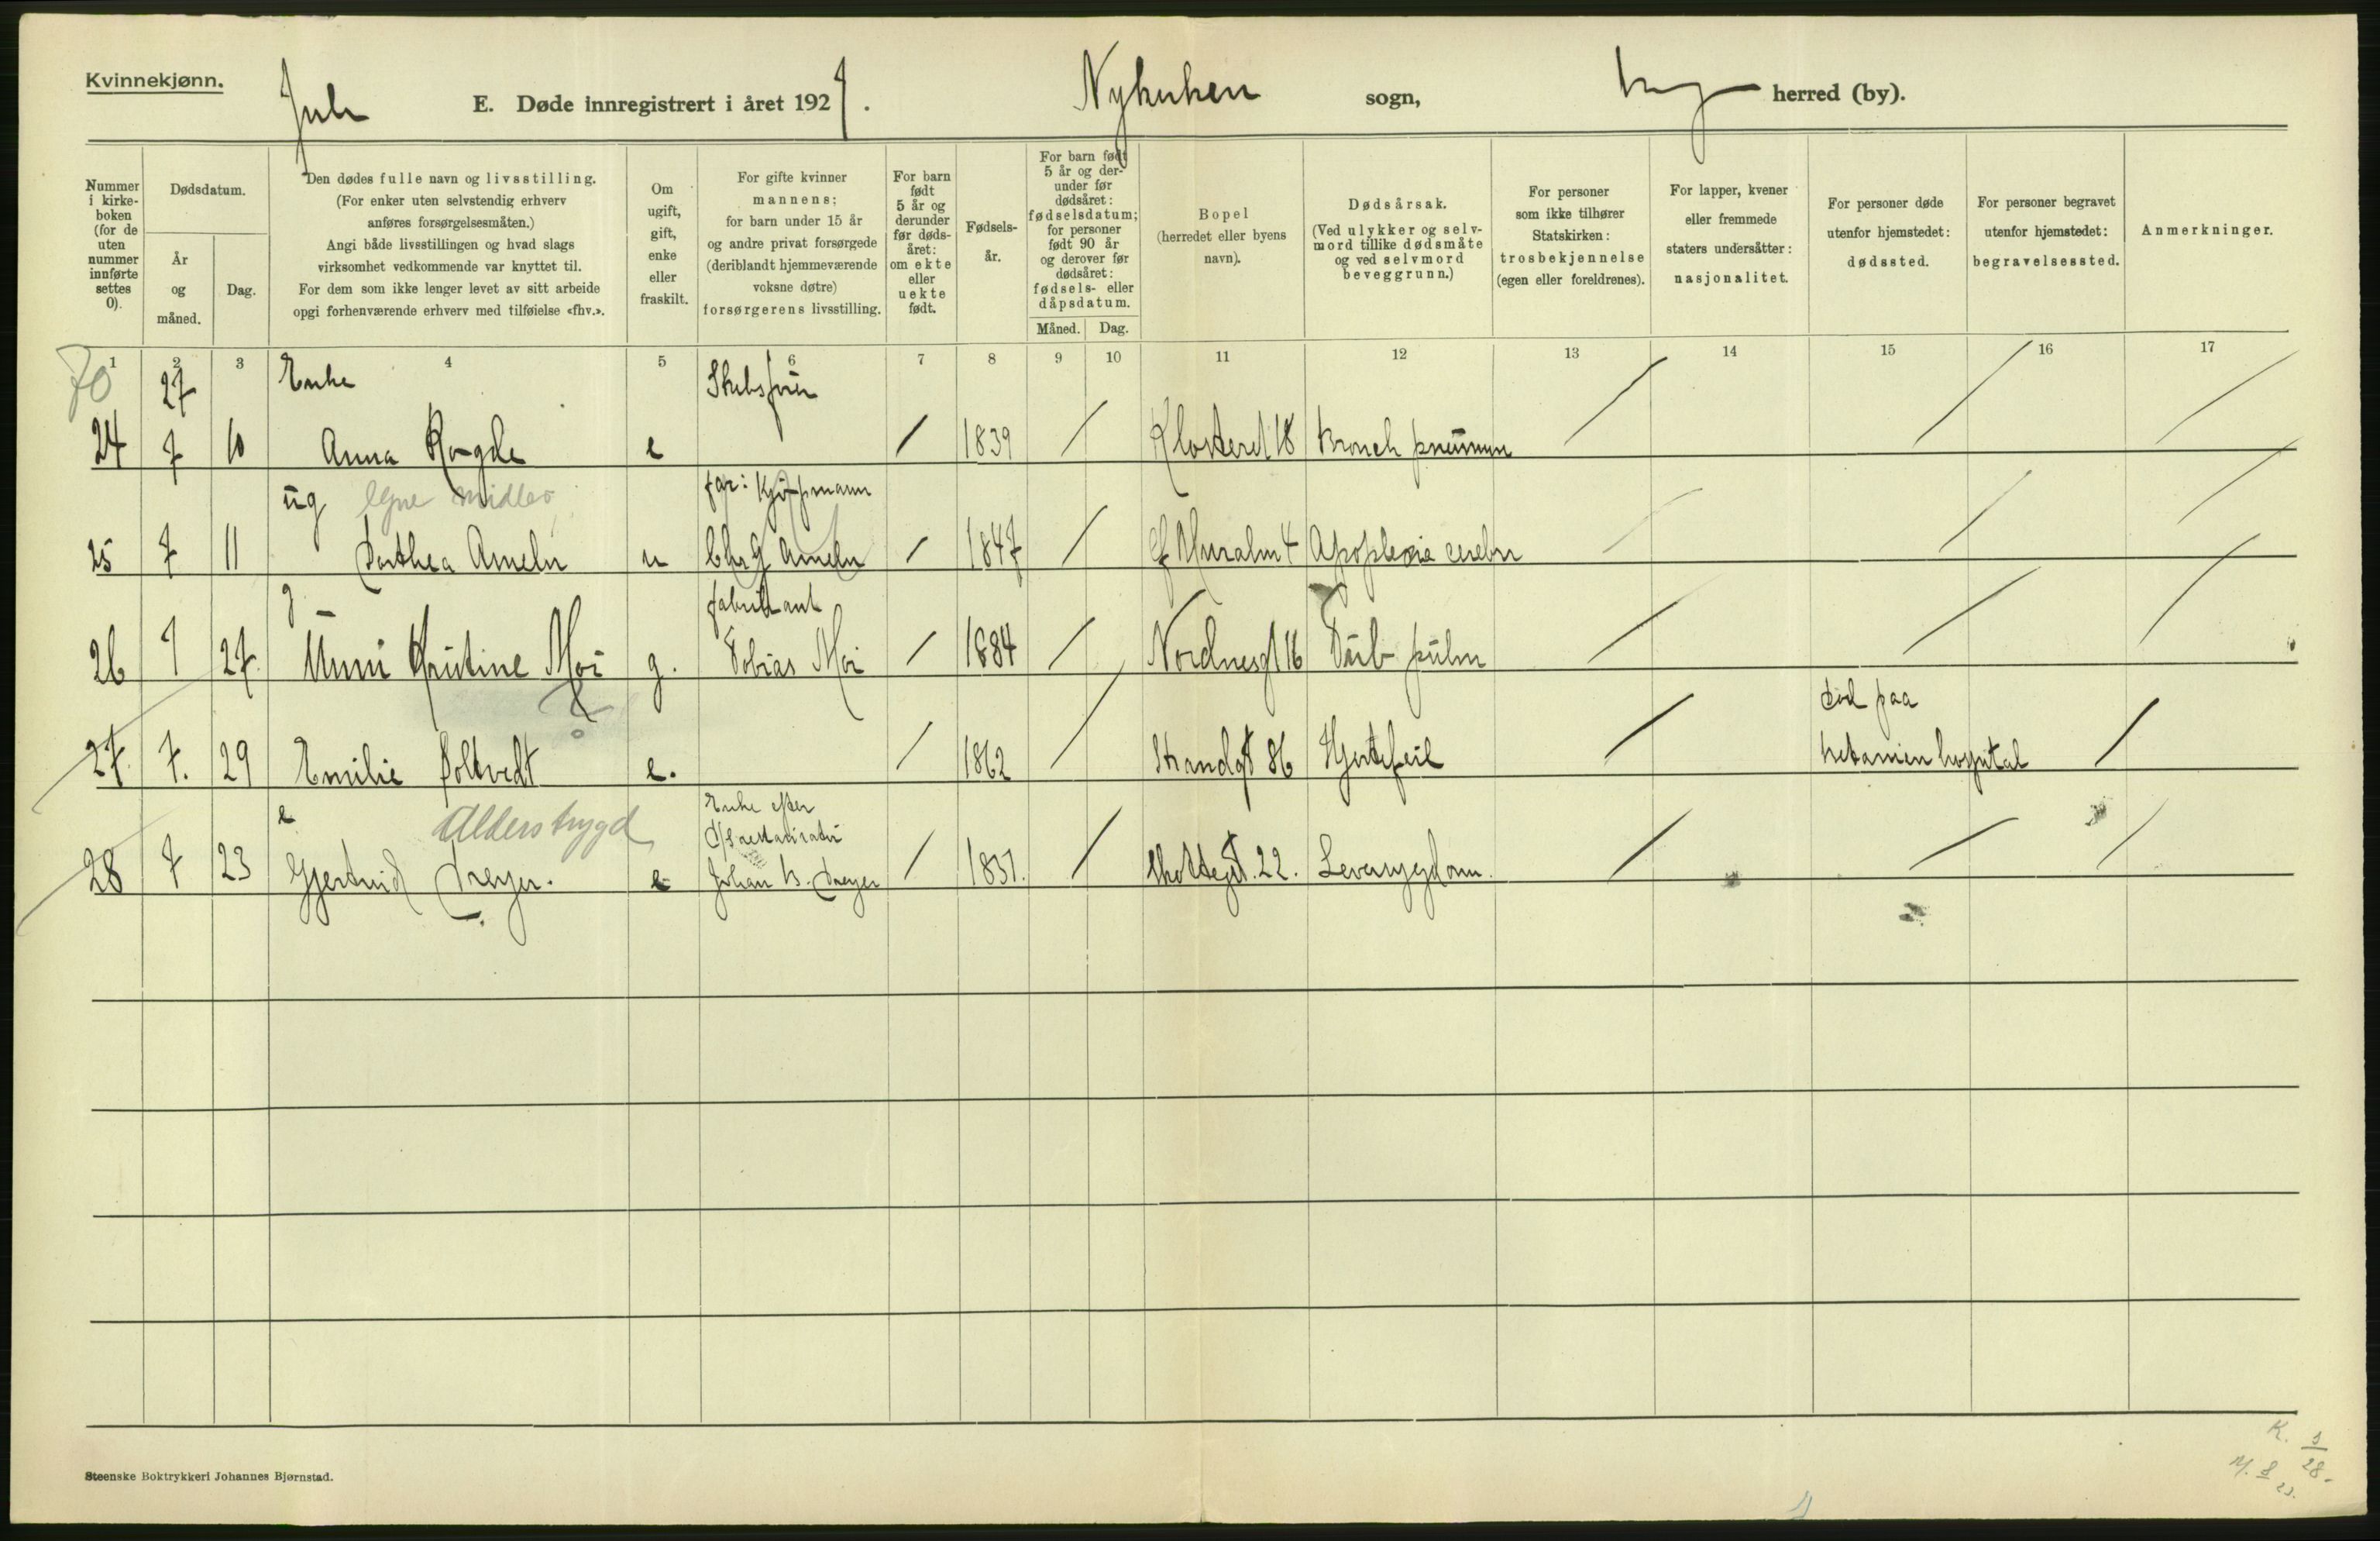 Kvinnekjønn.
Juli E. Døde innregistrert i året 1927. Nykirken sogn, herred (by).
Nummer i kirkeboken (for de uten nummer innførte settes 0).
Dødsdatum.
År og måned.
Dag.
Den dødes fulle navn og livsstilling.
(For enker uten selvstendig erhverv
anføres forsørgelsesmåten.)
Angi både livsstillingen og hvad slags
virksomhet vedkommende var knyttet til.
For dem som ikke lenger levet av sitt arbeide
opgi forhenværende erhverv med tilføielse «fhv.».
Om
ugift,
gift,
enke
eller
fraskilt.
For gifte kvinner
mannens;
for barn under 15 år
og andre privat forsørgede
(deriblandt hjemmeværende
voksne døtre)
forsørgerens livsstilling.
For barn
født
5 år og
derunder
før døds-
året:
om ekte
eller
uekte
født.
Fødsels-
år.
For barn født
5 år og der-
under før
dødsåret:
fødselsdatum;
for personer
født 90 år
og derover før
dødsåret:
fødsels- eller
dåpsdatum.
Måned. Dag.
Bopel
(herredet eller byens
navn).
Dødsårsak.
(Ved ulykker og selv-
mord tillike dødsmåte
og ved selvmord
beveggrunn.)
For personer
som ikke tilhører
Statskirken:
trosbekjennelse
(egen eller foreldrenes).
For lapper, kvener
eller fremmede
staters undersåtter:
nasjonalitet.
For personer døde
utenfor hjemstedet:
dødssted.
For personer begravet
utenfor hjemstedet:
begravelsessted.
Anmerkninger.
1 2 3 4 5 6 7 8 9 10 11 12 13 14 15 16 17
70 27 Enke
24 7 10 Anna Rogde e / 1839 / Klosteret 18 Bronch pneumon / / /
ug Egne midler far: Kjøpmann
25 7 11 Dorthea Ameln u Chr G Ameln / 1847 / Apoplexia cerebri / / /
g fabrikant
26 7 27. Kristine Moi g. Tobias Moi / 1884 / Nordnesgt 16 Tub pulm / / /
død paa
27. 7. 29 Emilie Soltvedt e. / 1862 / Strandgt 86 Hjertefeil / hospital /
e Alderstrygd Enke efter
28 7 23 Gjertrud Dreyer. e Johan B. Dreyer / 1837. / 22. Leversygdom. / / /
K. 5/28-
M. 8/23.
Steenske Boktrykkeri Johannes Bjørnstad.